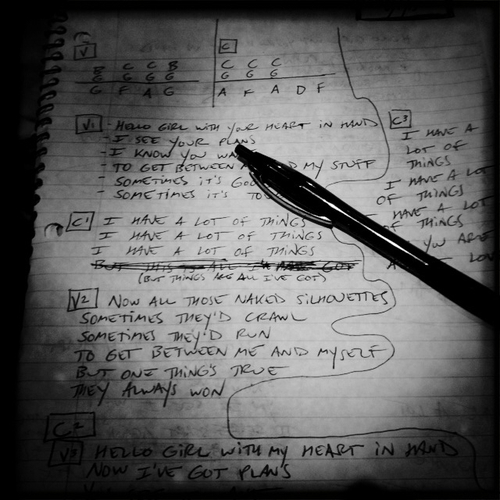 V
C C B
G G G G
G F A G
C
C C C
G G G
A F A D F
V1 - HELLO GIRL WITH YOUR HEART IN HAND
- I SEE YOUR PLANS
- I KNOW YOU
- TO GET BETWEEN MY STUFF
- SOMETIMES IT'S
- SOMETIMES IT'S
C1 I HAVE A LOT OF THINGS
I HAVE A LOT OF THINGS
I HAVE A LOT OF THINGS
(BUT THINGS ARE ALL I'VE GOT)
V2 NOW ALL THOSE NAKED SILHOUETTES
SOMETIMES THEY'D CRAWL
SOMETIMES THEY'D RUN
TO GET BETWEEN ME AND MYSELF
BUT ONE THING'S TRUE
THEY ALWAYS WON
C2
V3 HELLO GIRL WITH MY HEART IN HAND
NOW I'VE GOT PLANS
C3
I HAVE A
LOT OF
THINGS
I HAVE A LOT
OF THINGS
I HAVE A LOT
OF THINGS
YOU ARE